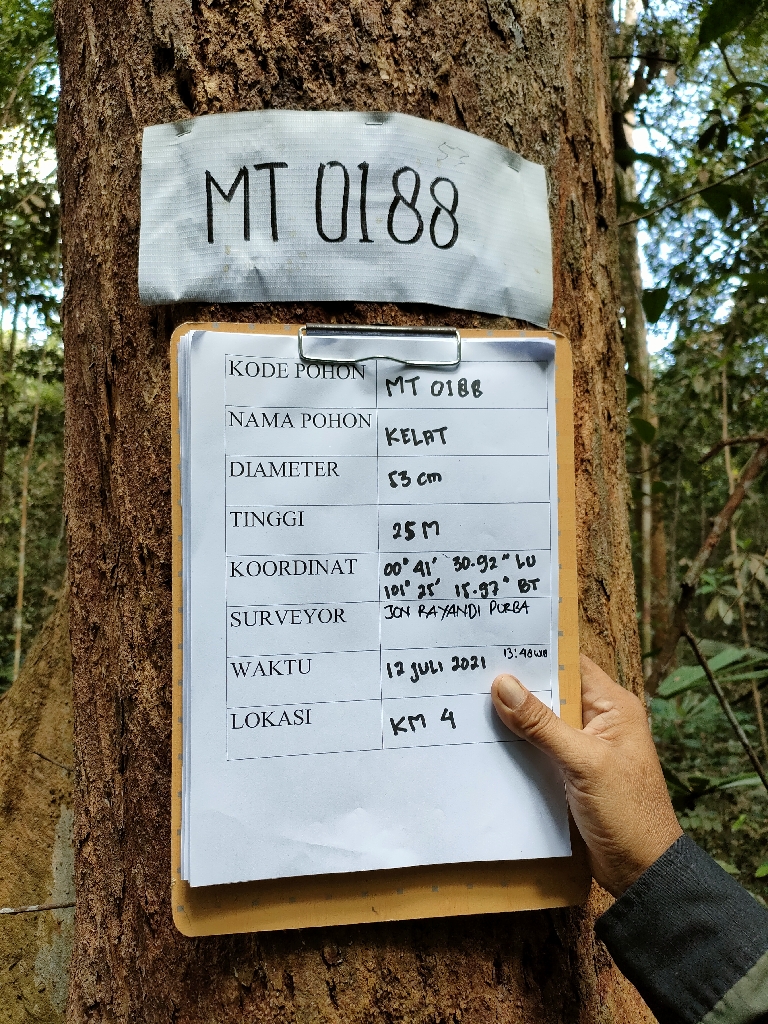 MT 0188
KODE POHON MT 0188
NAMA POHON KELAT
DIAMETER 53 cm
TINGGI 25 M
KOORDINAT 00° 41' 30.92" LU
101° 25' 15.97" BT
SURVEYOR JON RAYANDI PURBA
WAKTU 12 JULI 2021 13:48 WIB
LOKASI KM 4